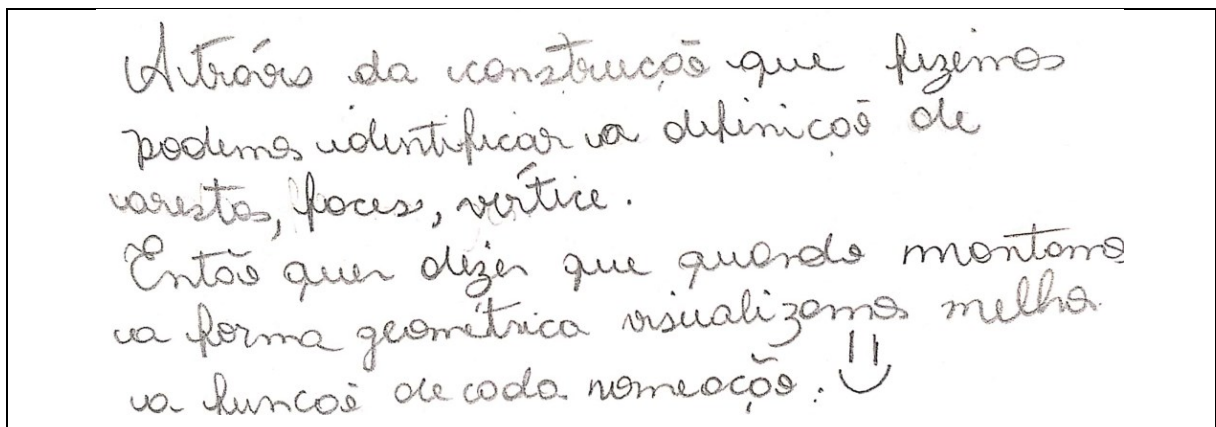 Atráves da construção que fizemos
podemos identificar a definição de
arestas, faces, vértice.
Então quer dizer que quando montamos
a forma geométrica visualizamos melhor
a função de cada nomeação.